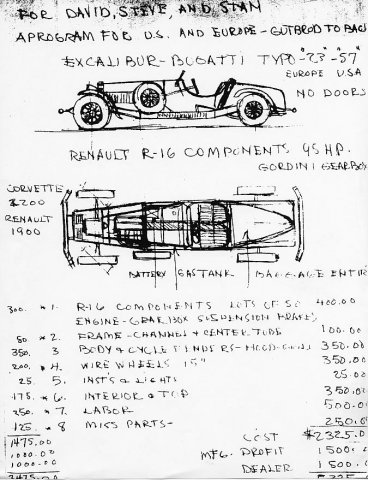 FOR DAVID, STEVE, AND STAN
A PROGRAM FOR U.S. AND EUROPE - GUTBROD TO BACK
EXCALIBUR - BUGATTI TYPO "23" - "57"
EUROPE USA
NO DOORS
RENAULT R-16 COMPONENTS 95 HP.
GORDINI GEARBOX
CORVETTE
$200
RENAULT
1900
BATTERY GASTANK BAGGAGE ENTIR
300. * 1. R-16 COMPONENTS LOTS OF 50 400.00
ENGINE - GEARBOX SUSPENSION BRAKES
50 * 2. FRAME - CHANNEL & CENTER TUBE 100.00
350. 3 BODY & CYCLE FENDERS - HOOD 350.00
200. * 4. WIRE WHEELS 15" 350.00
25. 5. INSTS & LIGHTS 25.00
175. * 6. INTERIOR & TOP 350.00
250. * 7. LABOR 500.00
125. * 8 MISS PARTS - 250.00
1475.00 COST $2325.0
1000.00 MFG. PROFIT 1500.
1000.00 DEALER 1500.
3475.00 5325.00